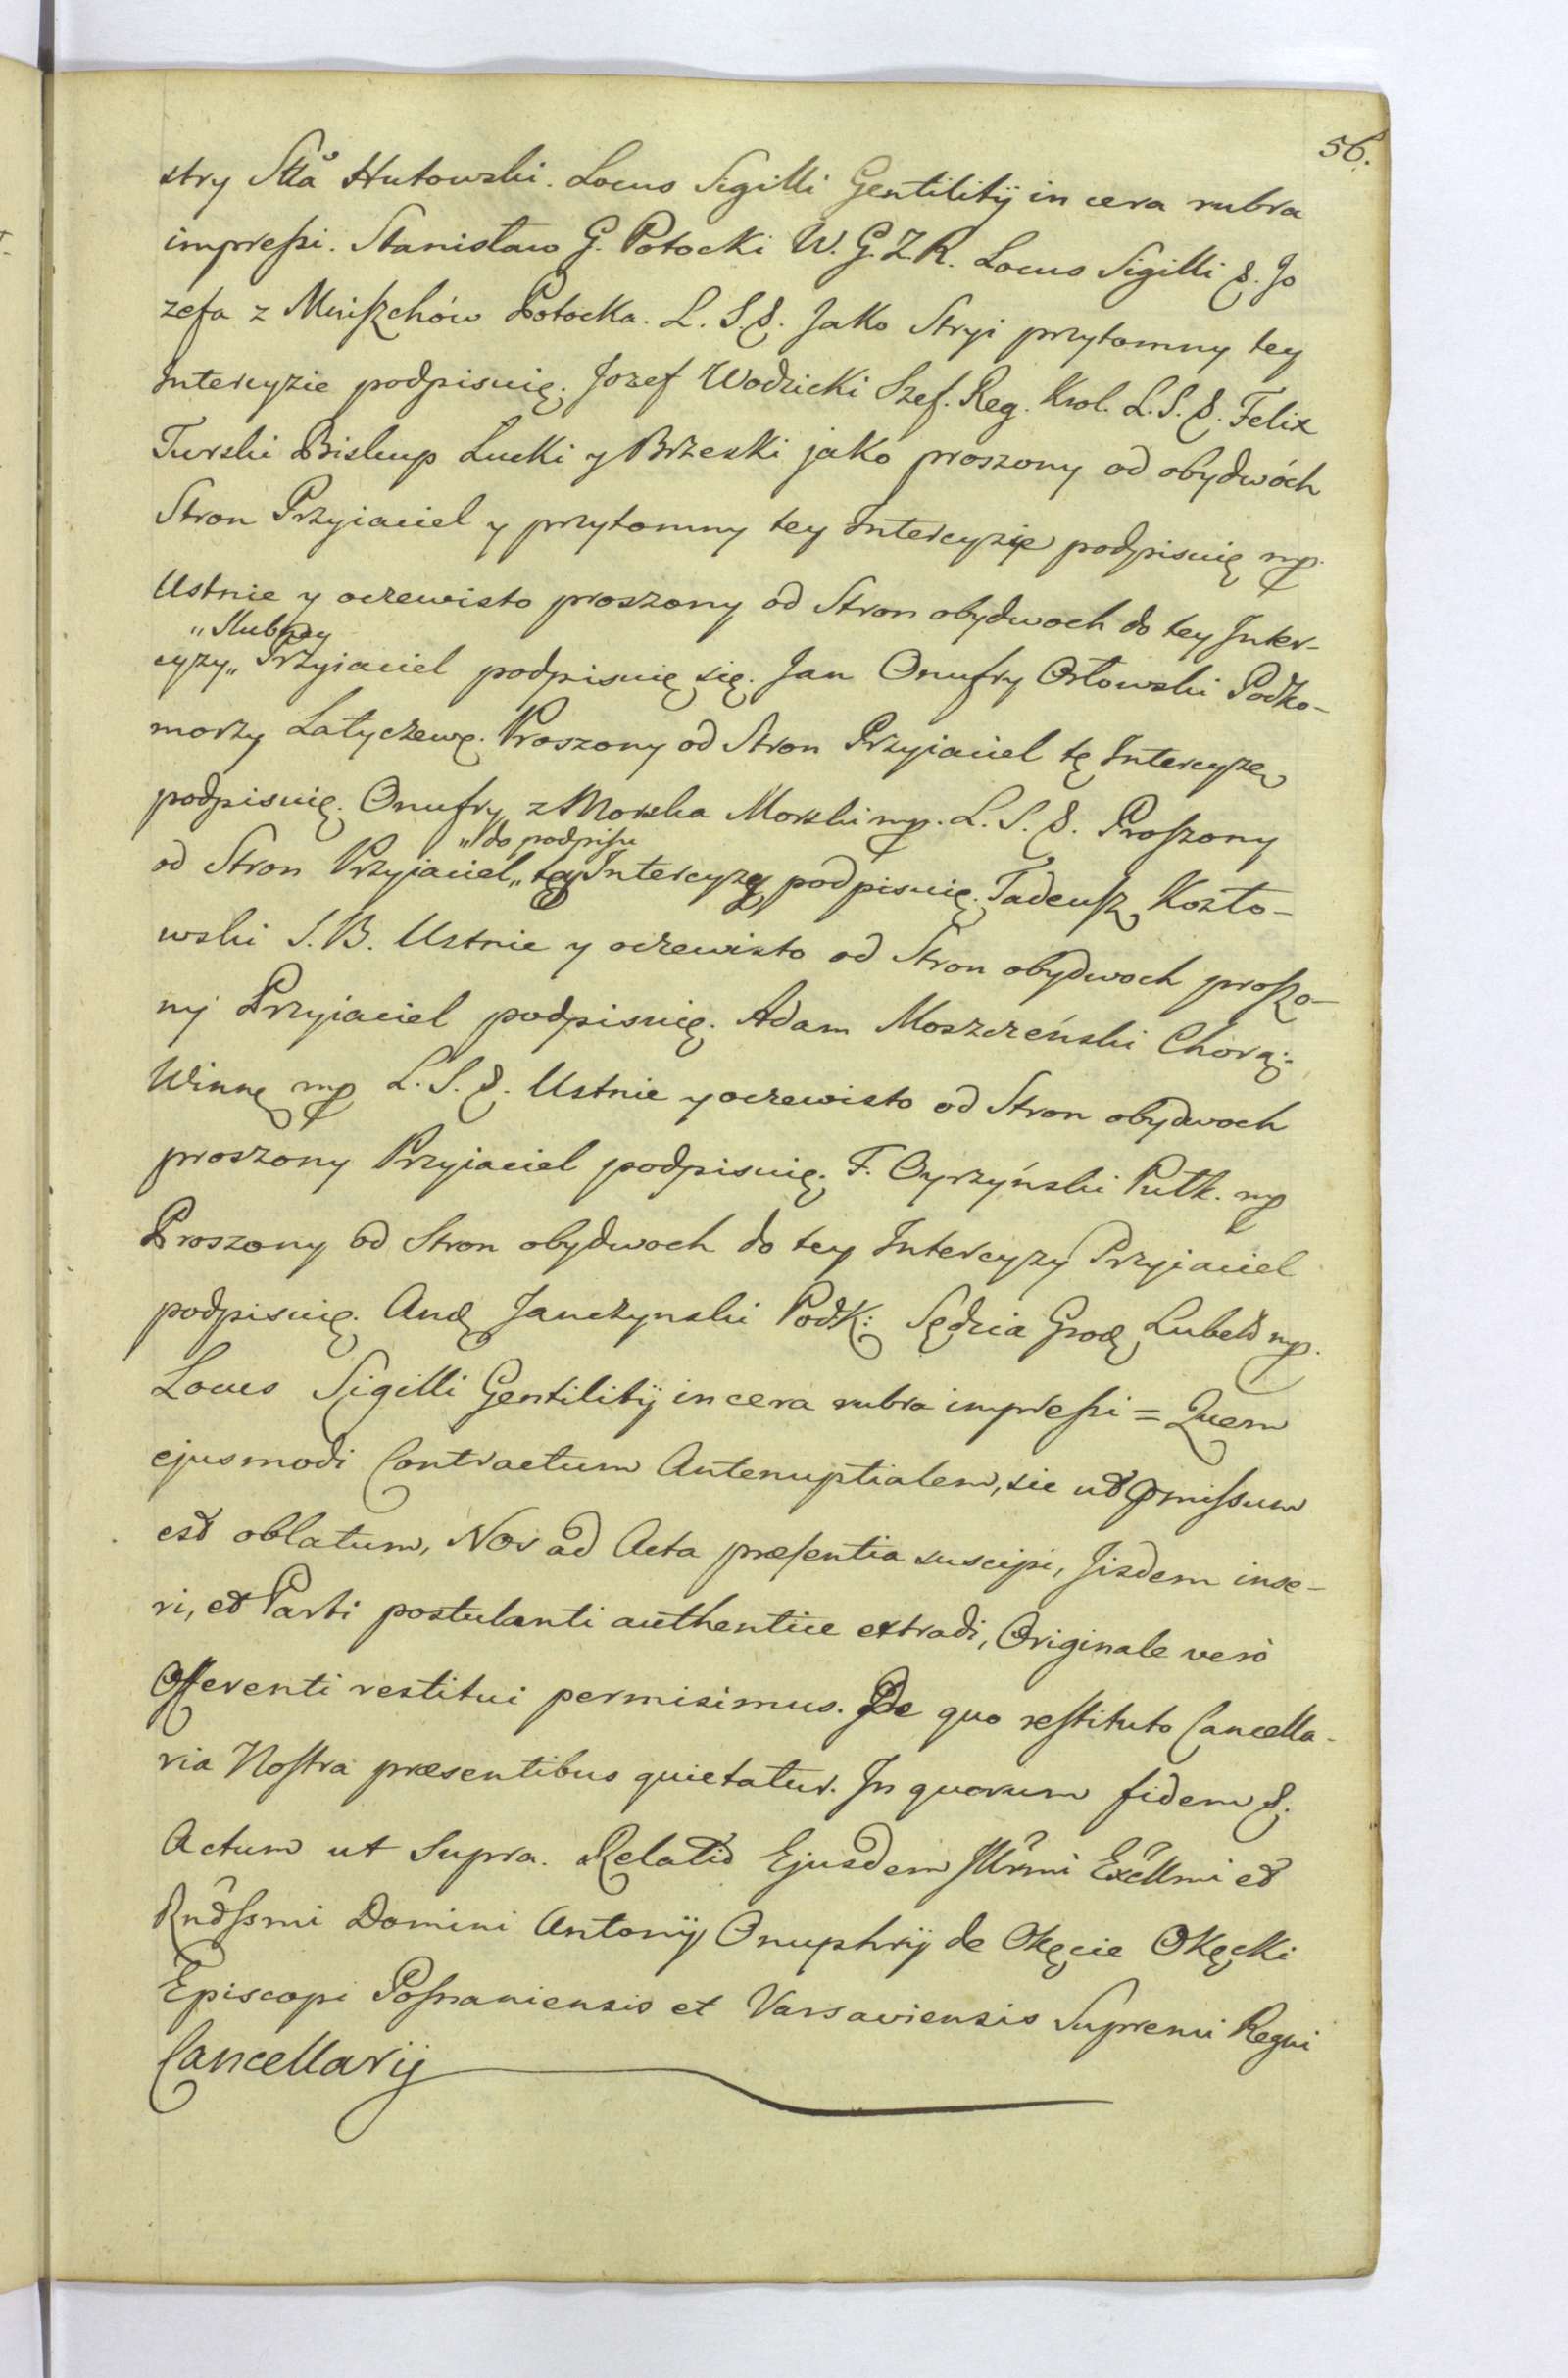 56.
stry Stta Hutowski. Locus Sigilli Gentilitÿ in cera rubra
impreſsi. Stanisław G. Potocki W. G. Z. R. Locus Sigilli &. Jo
zefa z Mniſzchów Potocka. L. S. &. Jako Stryi przytomny tey
Intercyzie podpisuię. Jozef Wodzicki Szef. Reg. Krol. L. S. &. Felix
Turski Biskup Łucki y Brzeski jako proszony od obydwóch
Stron Przyiaciel y przytomny tey Intercyzie podpisuię mp.
Ustnie y oczewisto proszony od Stron obydwoch do tey Inter-
„Slubney
cyzy„ Przyiaciel podpisuię się. Jan Onufry Orłowski Podko-
morzy Latyczews. Proszony od Stron Przyiaciel tę Intercyzę
podpisuię. Onufry z Morska Morski mp. L. S. &. Proſzony
„do podpisu
od Stron Przyiaciel„ tey Intercyzy podpisuię. Tadeuſz Kozło-
wski S. B. Ustnie y oczewisto od Stron obydwoch proſzo-
ny Przyiaciel podpisuię. Adam Moszczeński Chorą:
Winn: mp L. S. &. Ustnie y oczewisto od Stron obydwoch
proszony Przyiaciel podpisuię. F. Cyrzyński Pułk. mp
Proszony od Stron obydwoch do tey Intercyzy Przyiaciel
podpisuię. And: Janczynski PodK: Sędzia Grod: Lubels mp.
Locus Sigilli Gentilitÿ in cera rubra impreſsi = Quem
ejusmodi Contractum Antenuptialem, sic ut pmiſsum
est oblatum, Nos ad Acta præſentia suscipi, Jisdem inse-
ri, et Parti postulanti authentice extradi, Originale verò
Offerenti restitui permisimus. De quo reſtituto Cancella-
ria Noſtra præsentibus quietatur. In quorum fidem &.
Actum ut Supra. Relatio Ejusdem Illr̃mi Excell̃mi et
Rndſsmi Domini Antonÿ Onuphrÿ de Okęcie Okęcki
Episcopi Poſnaniensis et Varsaviensis Supremi Regni
Cancellarij